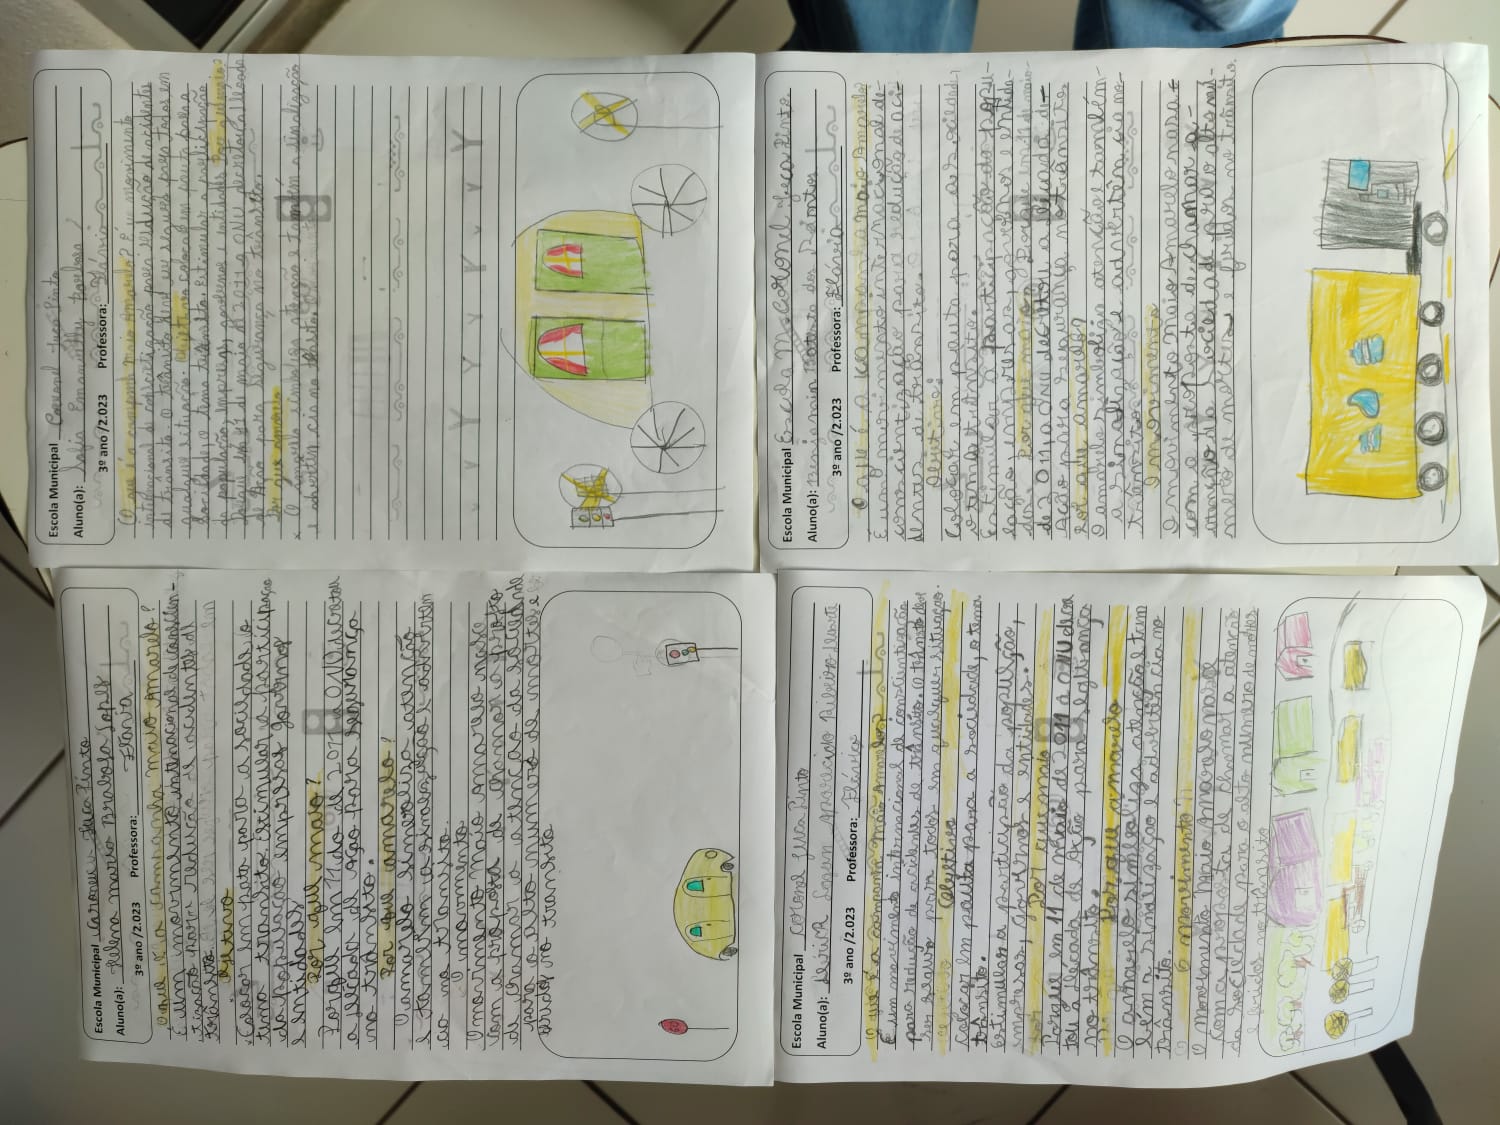 Escola Municipal Coronel Juca Pinto
Aluno(a): Sofia Emanuelly
3º ano /2.023 Professora: Flávia
O que é a campanha Maio Amarelo? É um movimento
internacional de conscientização para redução de acidentes
de trânsito. O trânsito deve ser seguro para todos em
qualquer situação. Objetivo: colocar em pauta para a
sociedade o tema trânsito. Estimular a participação
da população, empresas, governos e entidades. Por que maio?
Porque em 11 de maio de 2011 a ONU decretou a Década
de Ação para segurança no trânsito.
Por que amarelo
O amarelo simboliza atenção e também a sinalização
e advertência no trânsito.
Escola Municipal Escola M Coronel Juca Pinto
Aluno(a): Benjamin dos Santos
3º ano /2.023 Professora: Flávia
O que é a campanha maio Amarelo?
É um movimento internacional de
conscientização para redução de aci-
dentes de trânsito.
Objetivo:
Colocar em pauta para a sociedade,
o tema trânsito.
Estimular a participação da popu-
lação empresas, governos e entida-
des. Por que maio? Porque em 11 de maio
de 2011 a ONU decretou a Década de
Ação para segurança no trânsito.
Por que amarelo?
O amarelo simboliza atenção e também
a sinalização e advertência no
trânsito.
O movimento
O movimento maio Amarelo nasce
com a proposta de chamar a
atenção da sociedade para o alto nú-
mero de mortes e feridos no trânsito.
Escola Municipal Caronel Juca Pinto
Aluno(a): Helena maria Barbosa Lopes
3º ano /2.023 Professora: Flávia
O que é a campanha maio Amarelo?
É um movimento internacional de conscien-
tização para redução de acidentes de
trânsito.
Ojetivo
Colocar em pato para a sociedade o
tema transito. Estimular a participação
da população empresas governo
e entidades
Por que maio?
Porque em 11 de maio de 2011 a ONU decretou
a decada de ação para segurança
no transito.
Por que amarelo?
O amarelo simboliza atenção
e também a sinalização e advertem
cia no transito.
O movimento
O movimento maio amarelo nasce
com a proposta de chamar a
atenção da sociedade
para o alto número de mortes e
feridos no transito
Escola Municipal Coronel Juca Pinto
Aluno(a): Aparecido Ribeiro
3º ano /2.023 Professora: Flávia
O que é a campanha maio Amarelo?
É um movimento internacional de conscientização
para redução de acidentes de trânsito. O trânsito deve
ser seguro para todos em qualquer situação.
Objetivo
Colocar em pauta para a sociedade, o tema
trânsito.
Estimular a participação da população,
empresas, governos e entidades.
Por que maio
Porque em 11 de maio de 2011 a ONU decre
tou a Década de Ação para segurança
no trânsito.
Por que amarelo
O amarelo simboliza atenção e tam
bém a sinalização e advertência no
trânsito.
O movimento
O movimento Maio Amarelo nasce
com a proposta de chamar a atenção
da sociedade para o alto número de mortes
e feridos no trânsito